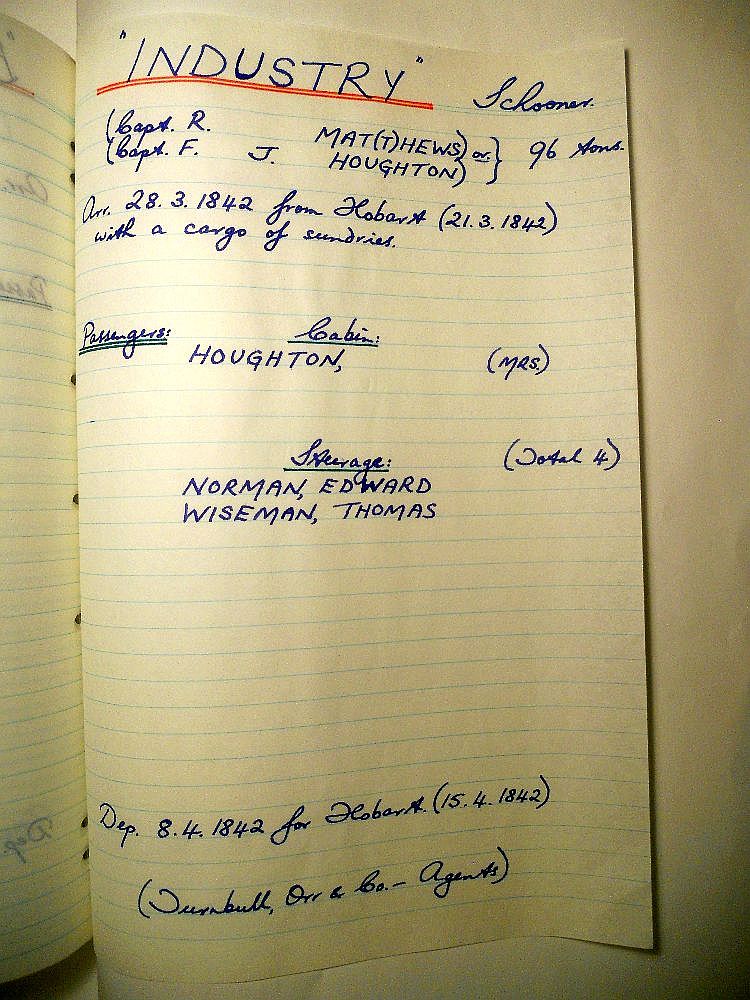 "INDUSTRY" Schooner.
(Capt. R. MAT(T)HEWS) or} 96 tons.
(Capt. F. J. HOUGHTON)
Arr. 28.3.1842 from Hobart (21.3.1842)
with a cargo of sundries.
Passengers: Cabin:
HOUGHTON, (MRS.)
Steerage: (Total 4)
NORMAN, EDWARD
WISEMAN, THOMAS
Dep. 8.4.1842 for Hobart. (15.4.1842)
(Turnbull, Orr & Co. - Agents)